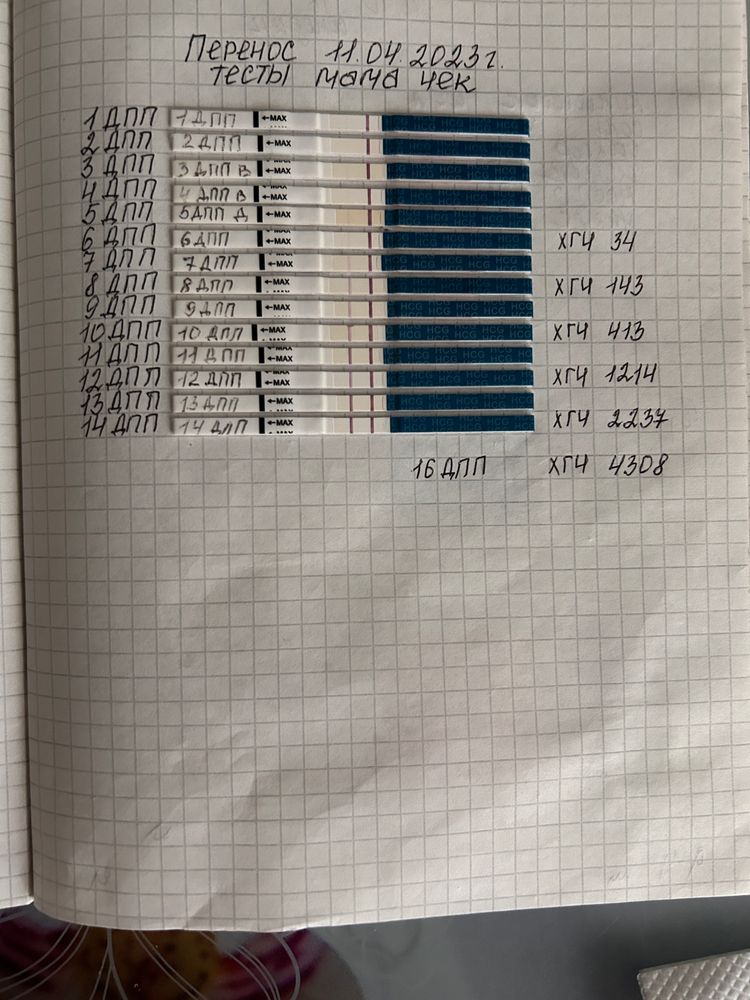 Перенос 11.04.2023г.
тесты мама чек
1 ДПП 1 ДПП ←MAX HCG HCG HCG
2 ДПП 2 ДПП ←MAX
3 ДПП 3 ДПП В ←MAX HCG HCG HCG
4 ДПП 4 ДПП В ←MAX
5 ДПП 5 ДПП Д ←MAX HCG HCG HCG
6 ДПП 6 ДПП ←MAX HCG HCG HCG ХГЧ 34
7 ДПП 7 ДПП ←MAX
8 ДПП 8 ДПП ←MAX ХГЧ 143
9 ДПП 9 ДПП ←MAX HCG HCG HCG
10 ДПП 10 ДПП ←MAX HCG HCG HCG ХГЧ 413
11 ДПП 11 ДПП ←MAX HCG HCG HCG
12 ДПП 12 ДПП ←MAX ХГЧ 1214
13 ДПП 13 ДПП ←MAX HCG HCG HCG
14 ДПП 14 ДПП ←MAX ХГЧ 2237
16 ДПП ХГЧ 4308